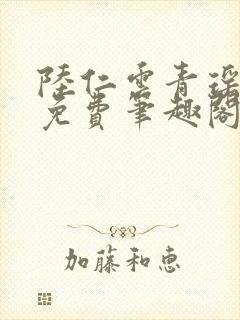 陸仁雲青瑤
免費筆趣閣
加藤和恵